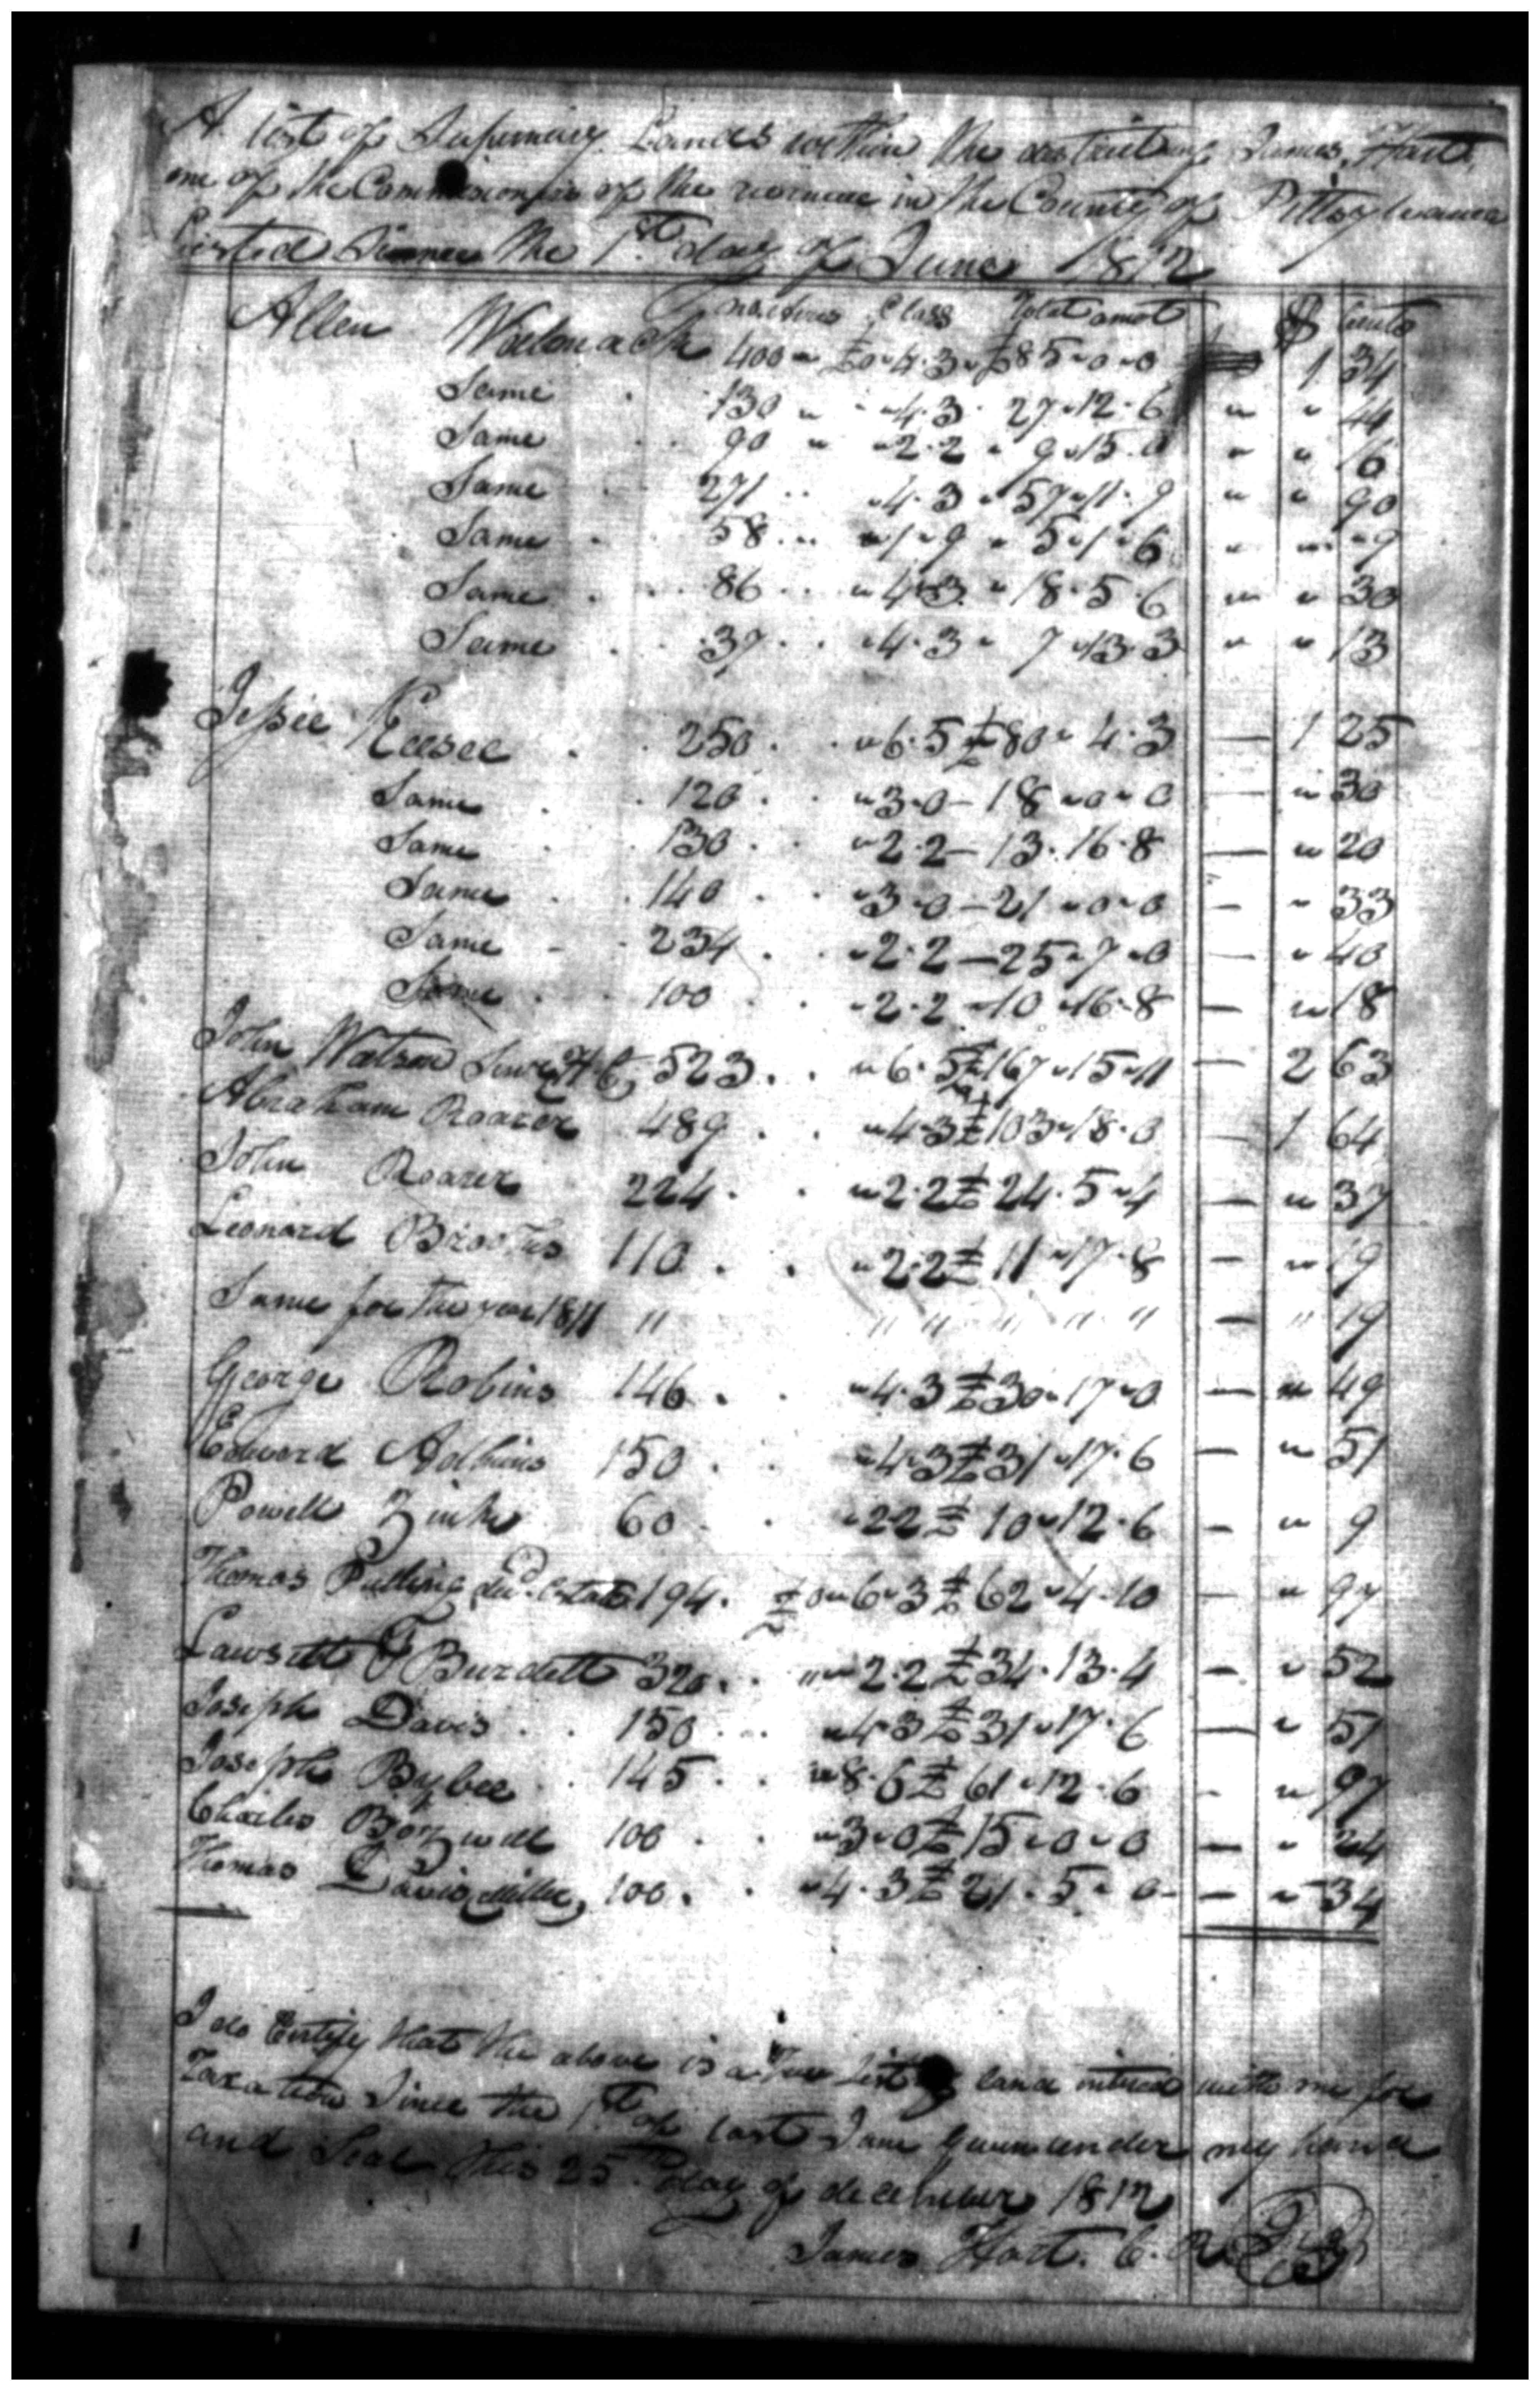 A list of Supernumy Lands within the district of James Hart
one of the Commissioners of the revenue in the County of Pittsylvania
Listed Since the 1st day of June 1812
no. acres Class Total amot $ Cents
Allen Womack 400 " £0"4.3 " £85"0"0 1 34
Same 130 " "4.3 . 27"12.6 " " 44
Same 90 " "2.2 " 9"15.0 " " 16
Same 271 .. "4.3 " 57"11.9 " " 90
Same 58 .. "1"9 " 5"1"6 " " "9
Same 86 .. "4"3 " 18.5.6 " " 30
Same 37 .. "4.3 " 7"13.3 " " 13
Jessee Keesee 250 . "6.5 £80"4.3 — 1 25
Same 120 . "3"0 – 18"0"0 — " 30
Same 130 . "2.2 – 13.16.8 — " 20
Same 140 . "3"0 – 21"0"0 — " 33
Same 234 . "2.2 – 25"7"0 — " 40
Same 100 . "2.2 "10"16.8 — " 18
John Watson Senr 523 .. "6.5 £167"15"11 — 2 63
Abraham Roarer 489 . "4"3 £103"18.0 — 1 64
John Roarer 224 . "2"2 £24.5"4 — " 37
Leonard Brooks 110 . "2.2 £11"17.8 — " 19
Same for the year 1811 " " " " " " — " 19
George Robins 146 . "4.3 £30"17"0 — " 49
Edward Adkins 150 . "4"3 £31"17.6 — " 51
Powell Zinks 60 . "22 £10"12.6 — " 9
Thomas Pulling decd. Estate 194 . £0"6"3 £62"4.10 — " 97
Lawsett F Burdett 320 .. ""2.2 £34.13.4 — " 52
Joseph Davis .. 150 .. "4"3 £31"17.6 — " 51
Joseph Bybee . 145 .. "8.6 £61"12.6 — " 97
Charles 100 .. "3"0 £15"0"0 — " 24
Thomas Davis Miller, 100 .. "4.3 £21.5"0 — " 34
I do Certify that the above is a True List of land entered with me for
Taxation Since the 1st of last June given under my hand
and Seal this 25th day of december 1812
James Hart. C. R.